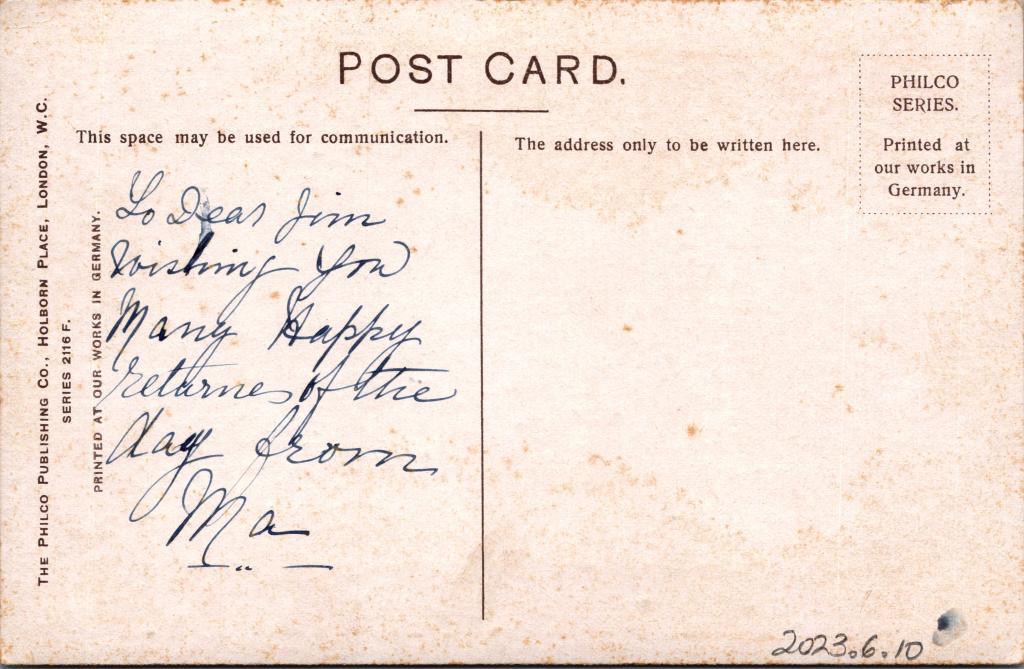 POST CARD.
This space may be used for communication.
The address only to be written here.
PHILCO
SERIES.
Printed at
our works in
Germany.
THE PHILCO PUBLISHING CO., HOLBORN PLACE, LONDON, W.C.
SERIES 2116 F.
PRINTED AT OUR WORKS IN GERMANY.
To Dear Jim
Wishing You
Many Happy
returnes of the
day from
Ma
2023.6.10